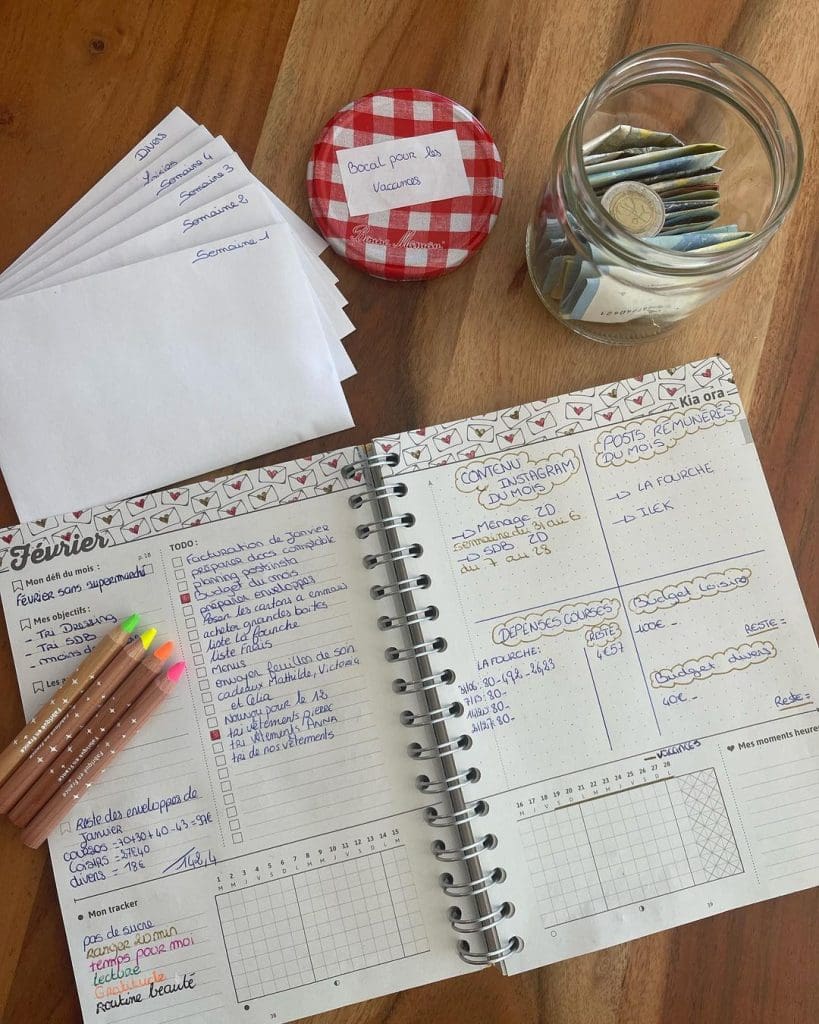 Divers
Semaine 4
Semaine 3
Semaine 2
Semaine 1
Bocal pour les
vacances
Bonne Maman
Février
p.18
Mon défi du mois :
Février sans supermarché
Mes objectifs :
- TRI DRESSING
- TRI SDB
- moins de
Les a
Fabriqué en France
Fabriqué en France
Reste des enveloppes de
Janvier
courses =70+30+40-43=97€
Loisirs =27€40
divers = 18€
142,4
TODO :
Facturation de janvier
préparer docs comptable
planning post insta
Budget du mois
préparer enveloppes
Poser les cartons a emmaüs
acheter grandes boites
liste la fourche
liste frais
menus
envoyer feuilles de soin
cadeaux Mathilde, Victoria
et Célia
Nounou pour le 12
tri vêtements PIERRE
tri vêtements ANNA
tri de nos vêtements
Mon tracker
pas de sucre
Ranger 20 min
temps pour moi
lecture
Gratitude
Routine beauté
1 2 3 4 5 6 7 8 9 10 11 12 13 14 15
M M J V S D L M M J V S D L M
38
Kia ora
CONTENU
INSTAGRAM
DU MOIS
-> Ménage ZD
semaine du 31 au 6
-> SDB ZD
du 7 au 28
POSTS RÉMUNÉRÉS
DU MOIS
-> LA FOURCHE
-> ILEK
DEPENSES COURSES
RESTE
LA FOURCHE:
4€57
31/06: 80-
7/13: 80-
14/20: 80-
21/27: 80-
Budget Loisirs
100€ -
RESTE =
Budget divers
40€ -
Reste =
vacances
16 17 18 19 20 21 22 23 24 25 26 27 28
M J V S D L M M J V S D L
Mes moments heureux
39